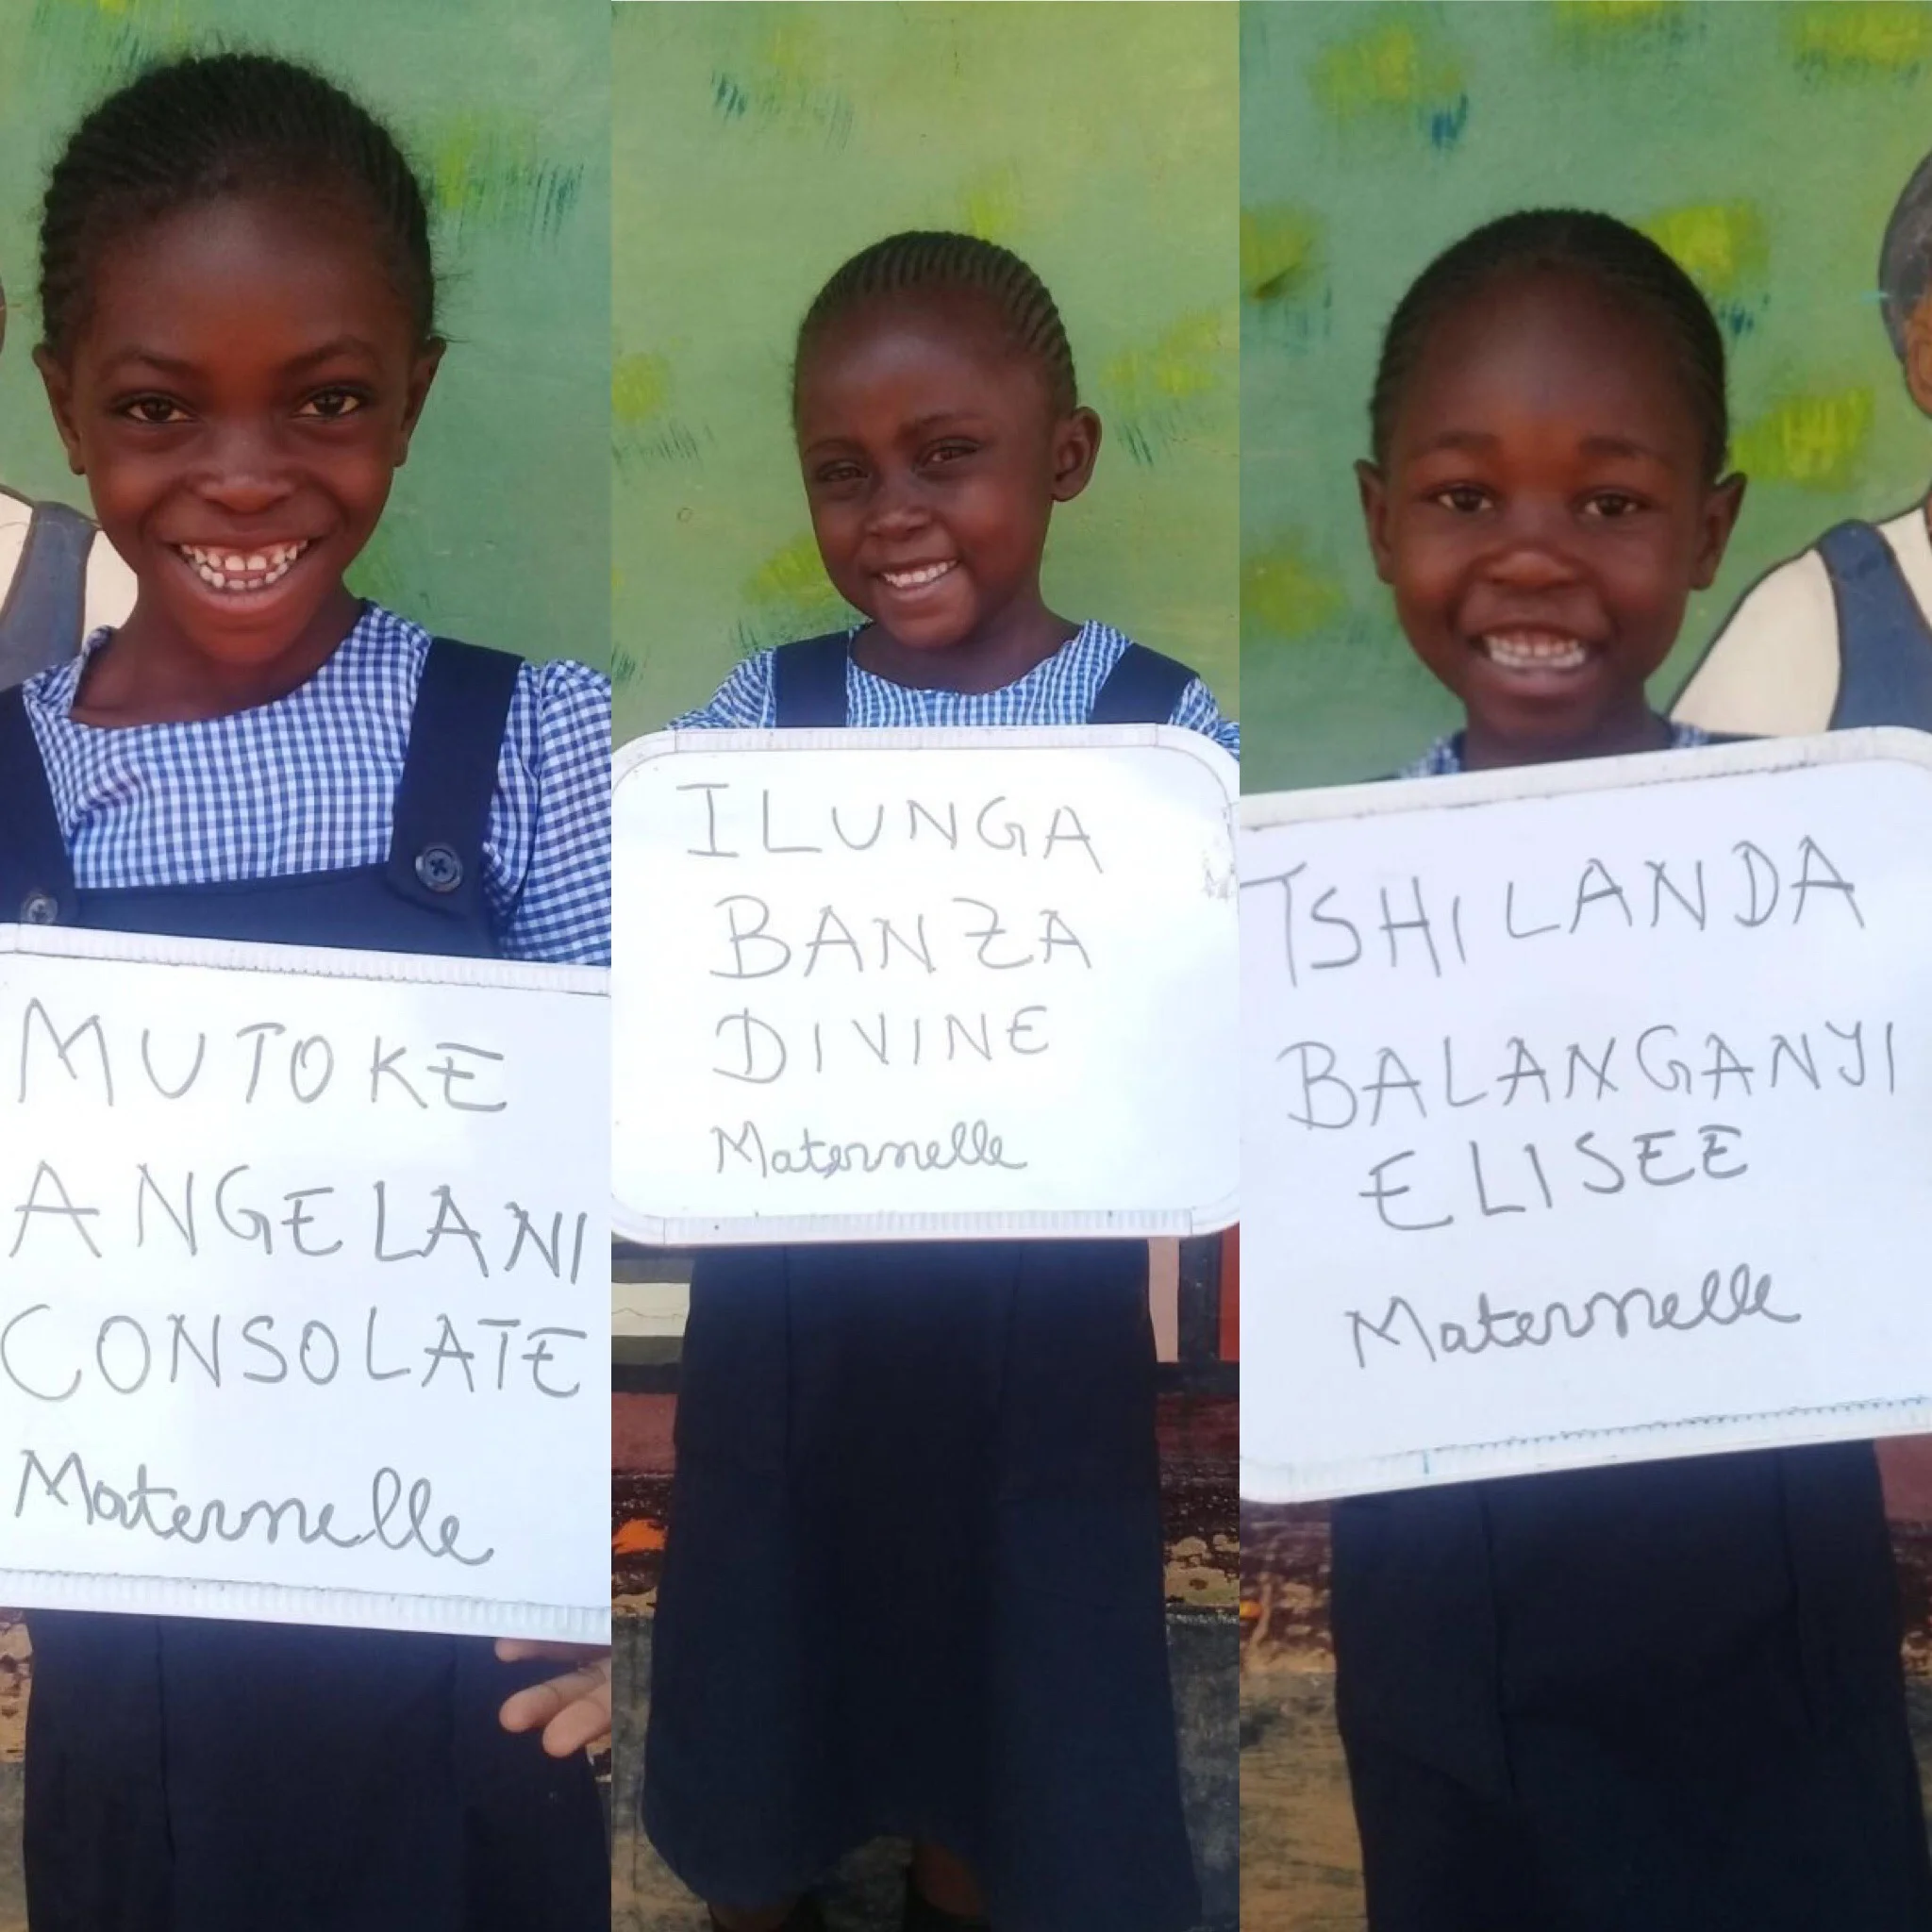 MUTOKE
ANGELANI
CONSOLATE
Maternelle
ILUNGA
BANZA
DIVINE
Maternelle
TSHILANDA
BALANGANYI
ELISEE
Maternelle